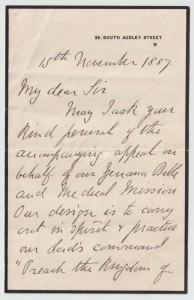 99, SOUTH AUDLEY STREET.
W
15th November 1887.
My dear Sir
May I ask your
kind perusal of the
accompanying appeal on
behalf of our Zenana Bible
and Medical Mission
Our design is to carry
out in spirit & practice
our Lord's command
"Preach the Kingdom of